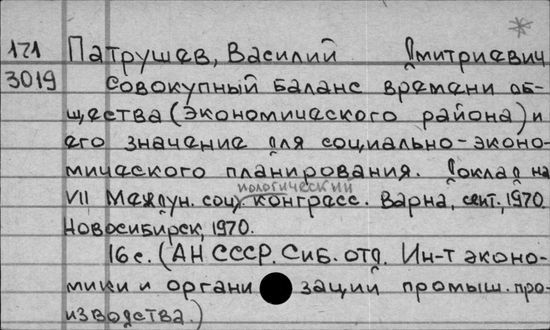 *
171 Патрушев, Василий Дмитриевич
3019 Совокупный баланс времени об-
щества (экономического района) и
его значение для социально-эконо-
мического планирования. Доклад на
иологический
VII Междун. соц. конгресс. Варна, сент., 1970.
Новосибирск, 1970.
16 с. (АН СССР. Сиб. отд. Ин-т эконо-
мики и органи зации промыш. про-
изводства.)